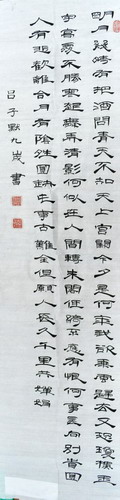 明月幾時有把酒問青天不知天上宮闕今夕是何年我欲乘風歸去又恐瓊樓玉
宇高處不勝寒起舞弄清影何似在人間轉朱閣低綺戶應有恨何事長向別時圓
人有悲歡離合月有陰晴圓缺此事古難全但願人長久千里共嬋娟
呂子默九歲書